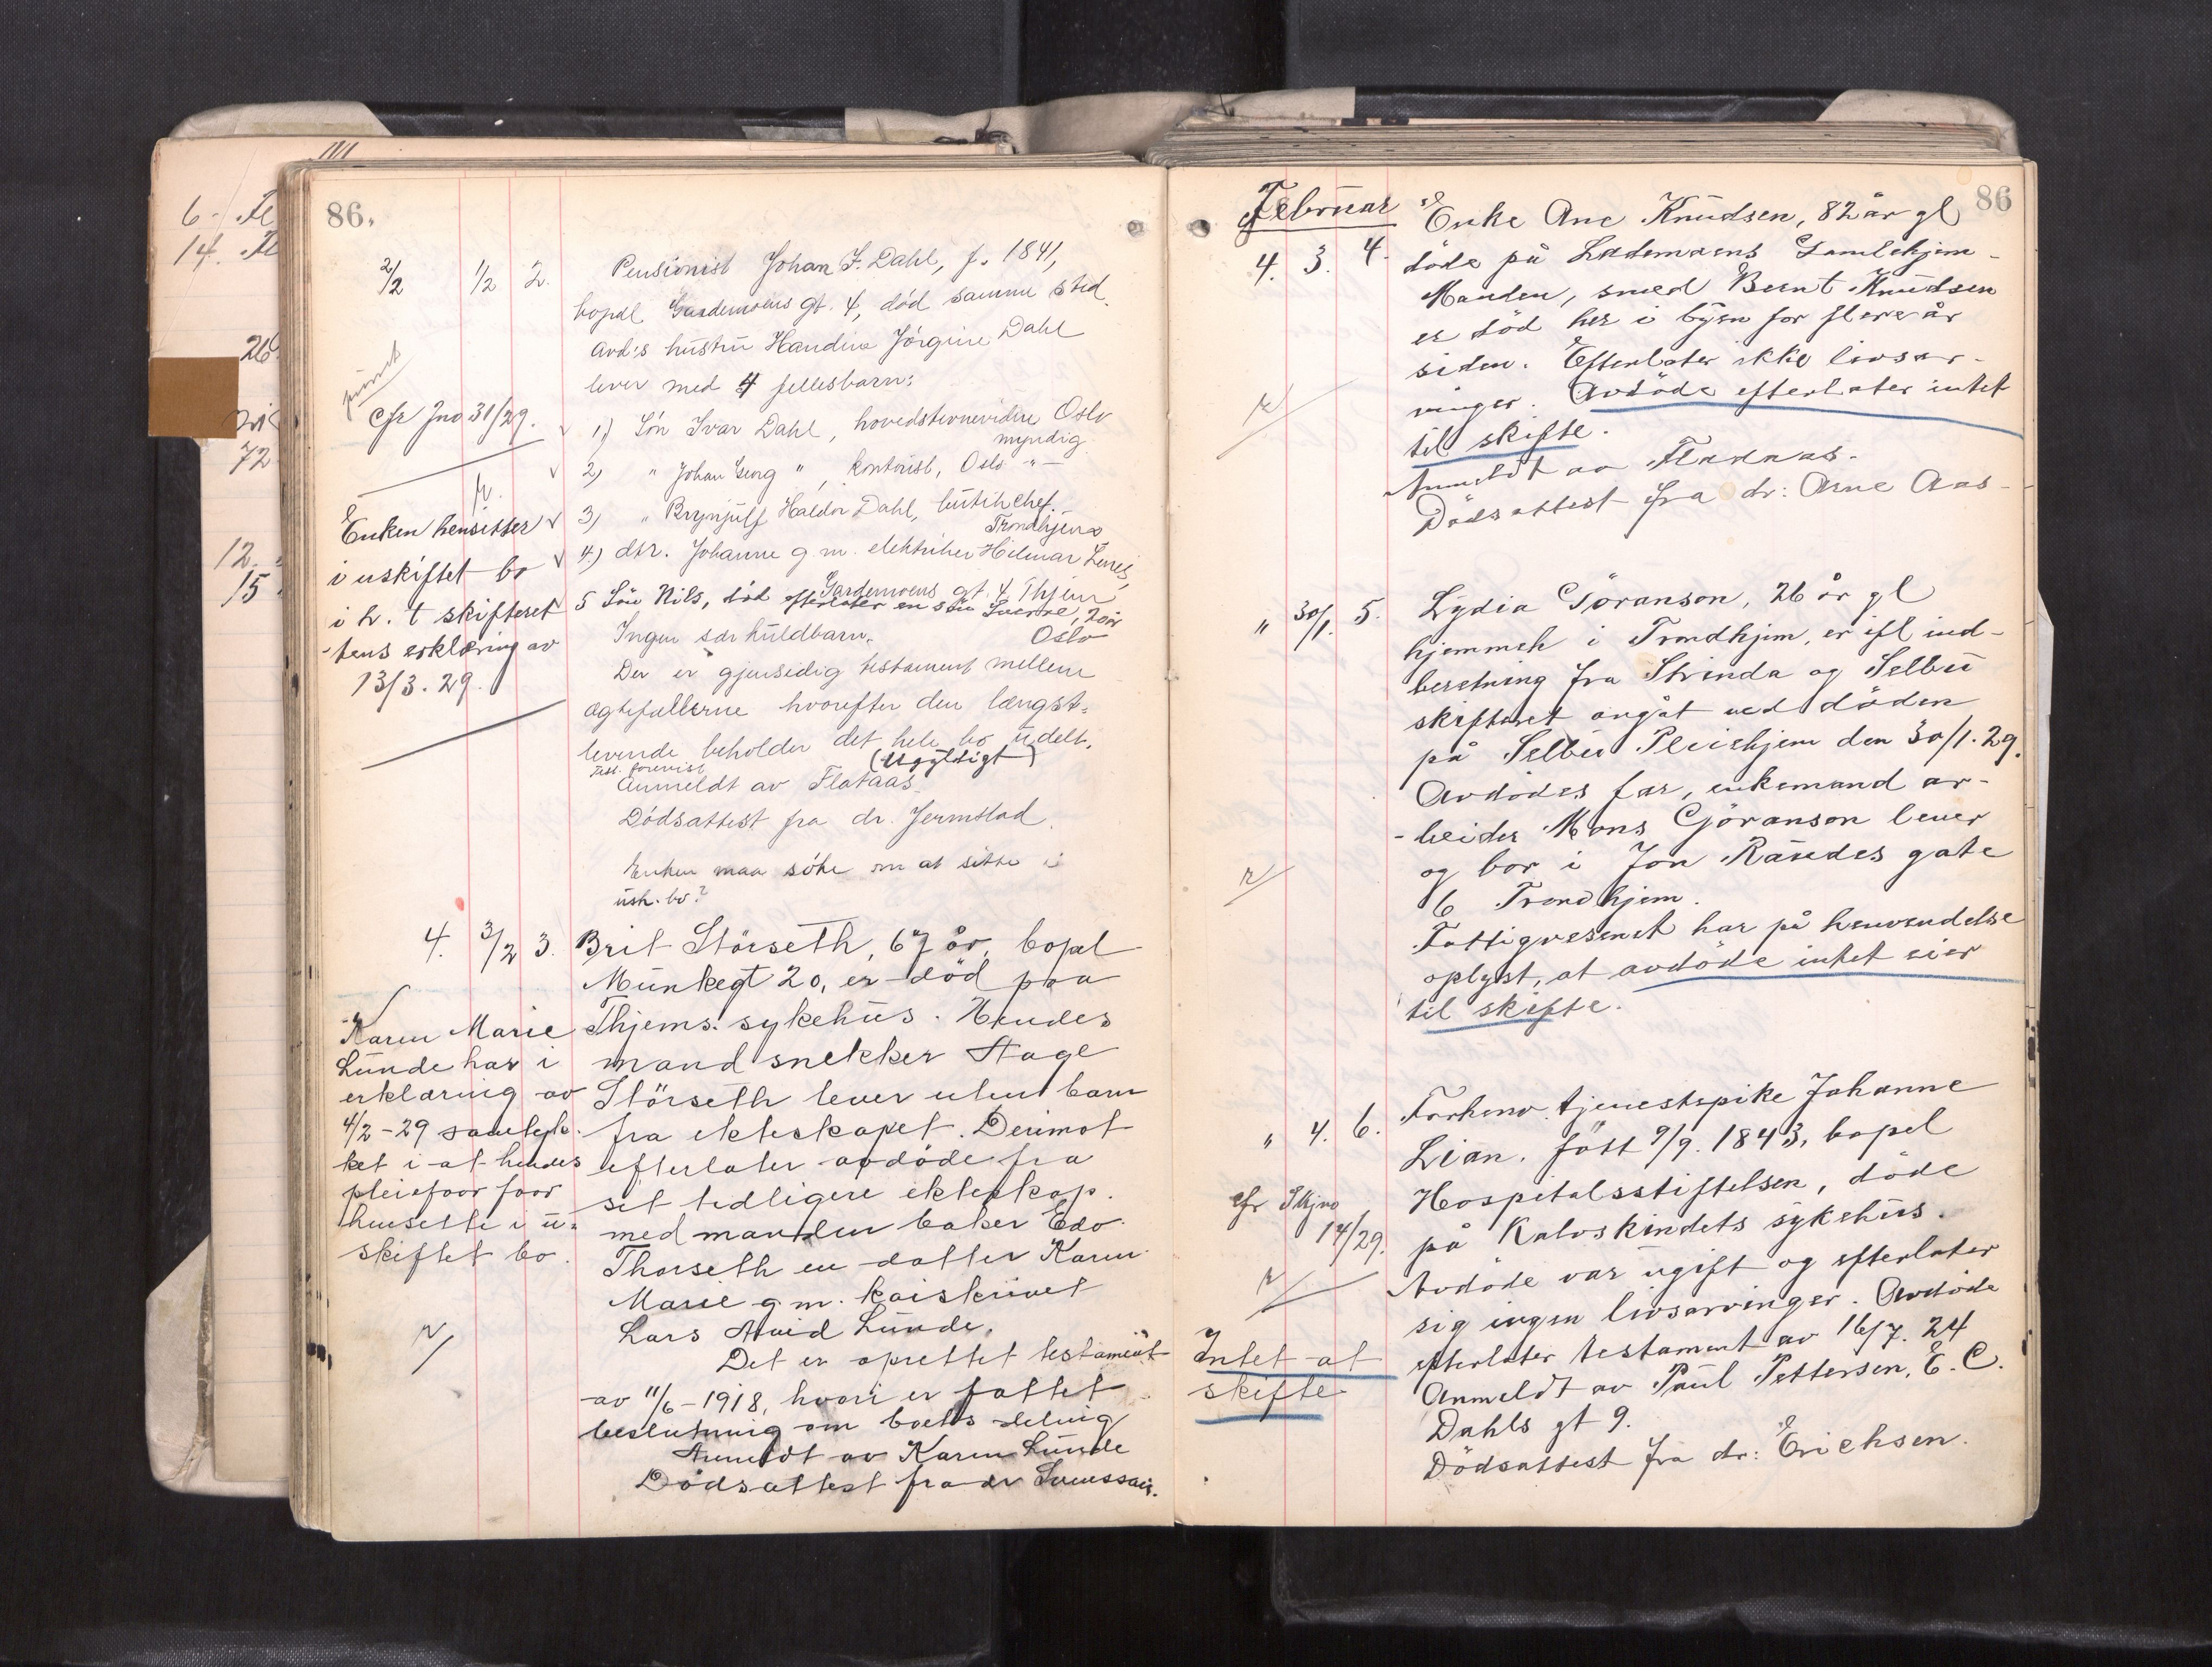 86.
2/2 1/2 2. Pensionist Johan F. Dahl, f. 1841,
bopel Gardemoens gt. 4, død samme sted.
Avd:s hustru Handine Jörgine Dahl
lever med 4 fellesbarn:
1) Sön Ivar Dahl, hovedstevnevidne Oslo
myndig
2) " Johan Georg ", kontorist, Oslo "-
3) " Brynjulf Haldor Dahl, butikchef.
Trondhjem
4) dtr. Johanne g. m. elektriker Hilmar
Gardemoens gt. 4 Thjem
5 Sön Nils, död efterlater en sön Sverre, 20 år
Oslo
Ingen særkuldbarn.
Der er gjensidig testament mellem
ægtefællerne hvorefter den længst-
levende beholder det hele bo udelt.
(Ugyldigt)
Anmeldt av Flataas.
Dödsattest fra dr. Jermstad.
Enken maa söke om at sitte i
usk. bo?
cfr Jno 31/29.
Enken hensitter
i uskiftet bo
i h. t skifteret
tens erklæring av
13/3. 29.
4. 3/2 3. Brit Störseth, 67 år, bopel
Munkegt 20, er död paa
Thjems. sykehus. Hendes
mand snekker Aage
Störseth lever uten barn
fra ekteskapet. Derimot
efterlater avdöde fra
sit tidligere ekteskap.
med manden baker Edv.
Thorseth en datter Karen
Marie g. m. kaiskriver
Lars Arvid Lunde.
Det er oprettet testament
av 11/6-1918, hvori er fattet
beslutning om boets deling
Anmeldt av Karen Lunde
Dödsattest fra dr
Karen Marie
Lunde har i
erklæring av
4/2-29 samtyk-
ket i at hendes
pleiefaar faar
hensitte i u-
skiftet bo.
Februar 86
4. 3. 4. Enke Ane Knudsen, 82 år gl
döde på Lademoens Gamlehjem-
Manden, smed Bernt Knudsen
er död her i byen for flere år
siden. Efterlater ikke livsar-
vinger. Avdöde efterlater intet
til skifte.
Anmeldt av Flataas.
Dödsattest fra dr: Arne Aas-
" 30/1. 5. Lydia Göranson, 26 år gl
hjemmeh i Trondhjem, er ifl ind-
beretning fra Strinda og Selbu
skifteret avgåt ved döden
på Selbu Pleiehjem den 30/1. 29.
Avdödes far, enkemand ar-
-beider Mons Göranson lever
og bor i Jon Raudes gate
6 Trondhjem.
Fattigvesenet har på henvendelse
oplyst, at avdöde intet eier
til skifte.
" 4. 6. Forhenv. tjenestepike Johanne
Lian. född 9/9. 1843, bopel
Hospitalsstiftelsen, döde
på Kalvskindets sykehus.
Avdöde var ugift og efterlater
sig ingen livsarvinger. Avdöde
efterlater testament av 16/7. 24
Anmeldt av Paul Pettersen, E. C.
Dahls gt 9.
Dödsattest fra dr: Erichsen.
cfr Skjno
14/29.
Intet at
skifte
6-
14.
26
72
12.
15